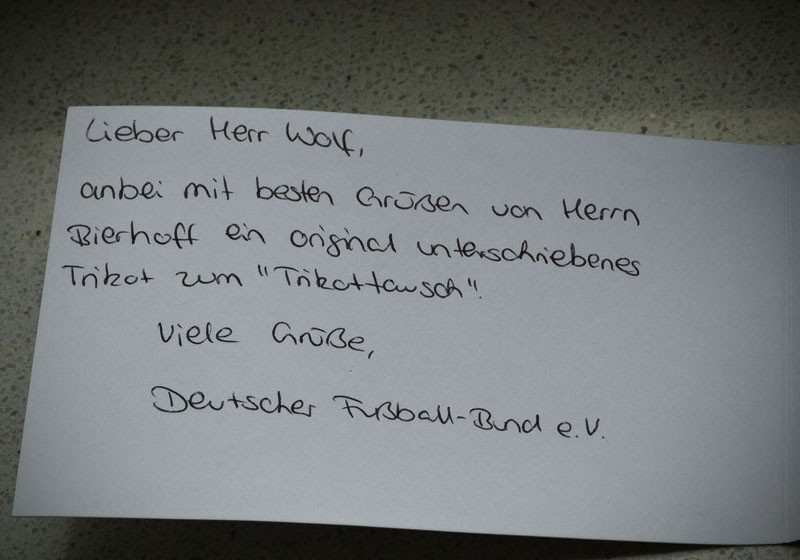 Lieber Herr Wolf,
anbei mit besten Grüßen von Herrn
Bierhoff ein original unterschriebenes
Trikot zum "Trikottausch".
Viele Grüße,
Deutscher Fußball-Bund e.V.